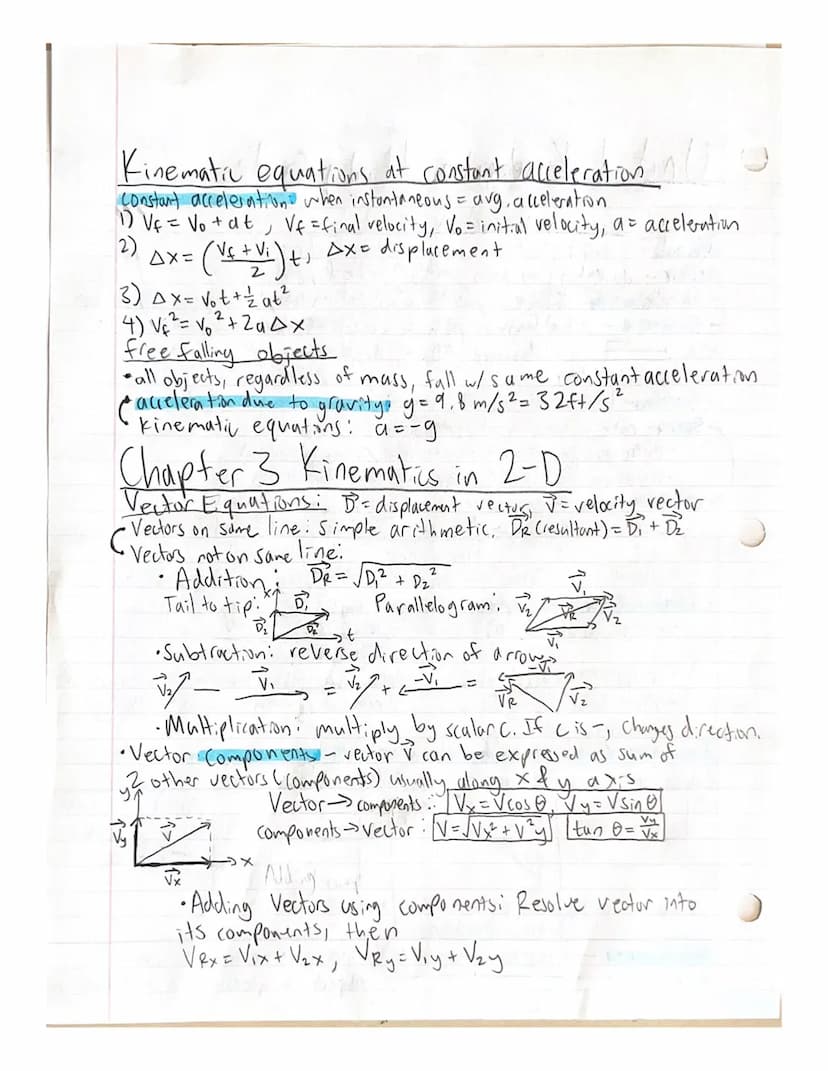 Kinematic equations at constant acceleration
constant acceleration: when instantaneous = avg. acceleration
1) Vf = V₀ + at , Vf = final velocity, V₀ = initial velocity, a = acceleration
2) Δx = ((Vf + Vi)/2)t, Δx = displacement
3) Δx = V₀t + ½ at²
4) Vf² = V₀² + 2aΔx
free falling objects
• all objects, regardless of mass, fall w/ same constant acceleration
acceleration due to gravity: g = 9.8 m/s² = 32ft/s²
• kinematic equations: a = -g
Chapter 3 Kinematics in 2-D
Vector Equations: D⃗ = displacement vector, V⃗ = velocity vector
Vectors on same line: simple arithmetic. D⃗R (resultant) = D⃗₁ + D⃗₂
Vectors not on same line:
• Addition: D⃗R = √(D₁² + D₂²)
Tail to tip: x D⃗₁ D⃗₂ t Parallelogram: V⃗₂ V⃗₁ V⃗R V⃗₂ V⃗₁
• Subtraction: reverse direction of arrow
V⃗₂ — V⃗₁ = V⃗₂ + -V⃗₁ = -V⃗₁ V⃗R V⃗₂
• Multiplication: multiply by scalar c. If c is -, changes direction.
• Vector components - vector V⃗ can be expressed as sum of
2 other vectors (components) usually along x & y axis
Vector → components: Vx = Vcosθ, Vy = Vsinθ
components → Vector: V = √(Vx² + V²y) tan θ = Vy/Vx
y V⃗y V⃗ V⃗x x
Adding
• Adding Vectors using components: Resolve vector into
its components, then
VRx = V₁x + V₂x, VRy = V₁y + V₂y